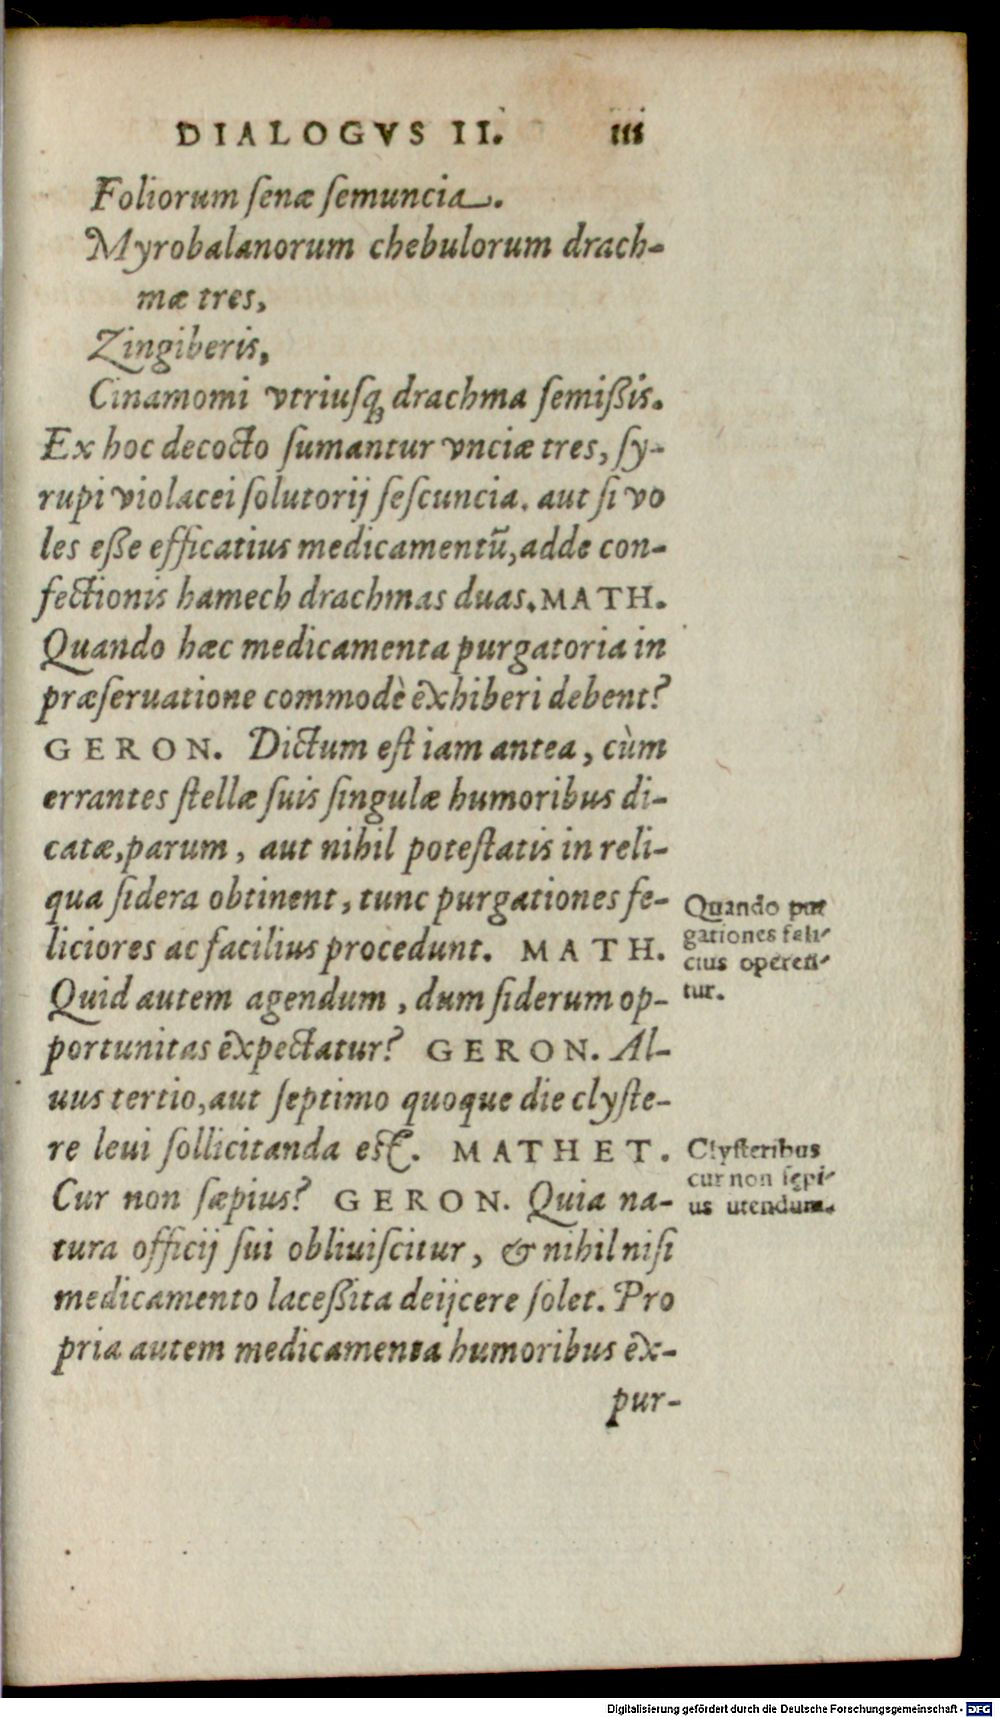 DIALOGVS II. 111
Foliorum ſenæ ſemuncia.
Myrobalanorum chebulorum drach-
mæ tres,
Zingiberis,
Cinamomi vtriuſq; drachma ſemißis.
Ex hoc decocto ſumantur vnciæ tres, ſy-
rupi violacei ſolutorij ſeſcuncia. aut ſi vo
les eße efficatius medicamentũ, adde con-
fectionis hamech drachmas duas. MATH.
Quando hæc medicamenta purgatoria in
præſeruatione commodè exhiberi debent?
GERON. Dictum eſt iam antea, cùm
errantes ſtellæ ſuis ſingulæ humoribus di-
catæ, parum, aut nihil poteſtatis in reli-
qua ſidera obtinent, tunc purgationes fe-
liciores ac facilius procedunt. MATH.
Quando pur
gationes feli-
cius operen-
tur.
Quid autem agendum, dum ſiderum op-
portunitas expectatur? GERON. Al-
uus tertio, aut ſeptimo quoque die clyſte-
re leui ſollicitanda eſt. MATHET.
Clyſteribus
cur non ſępi-
us utendum.
Cur non ſæpius? GERON. Quia na-
tura officij ſui obliuiſcitur, & nihil niſi
medicamento laceßita deijcere ſolet. Pro
pria autem medicamenta humoribus ex-
pur-
Digitalisierung gefördert durch die Deutsche Forschungsgemeinschaft - DFG